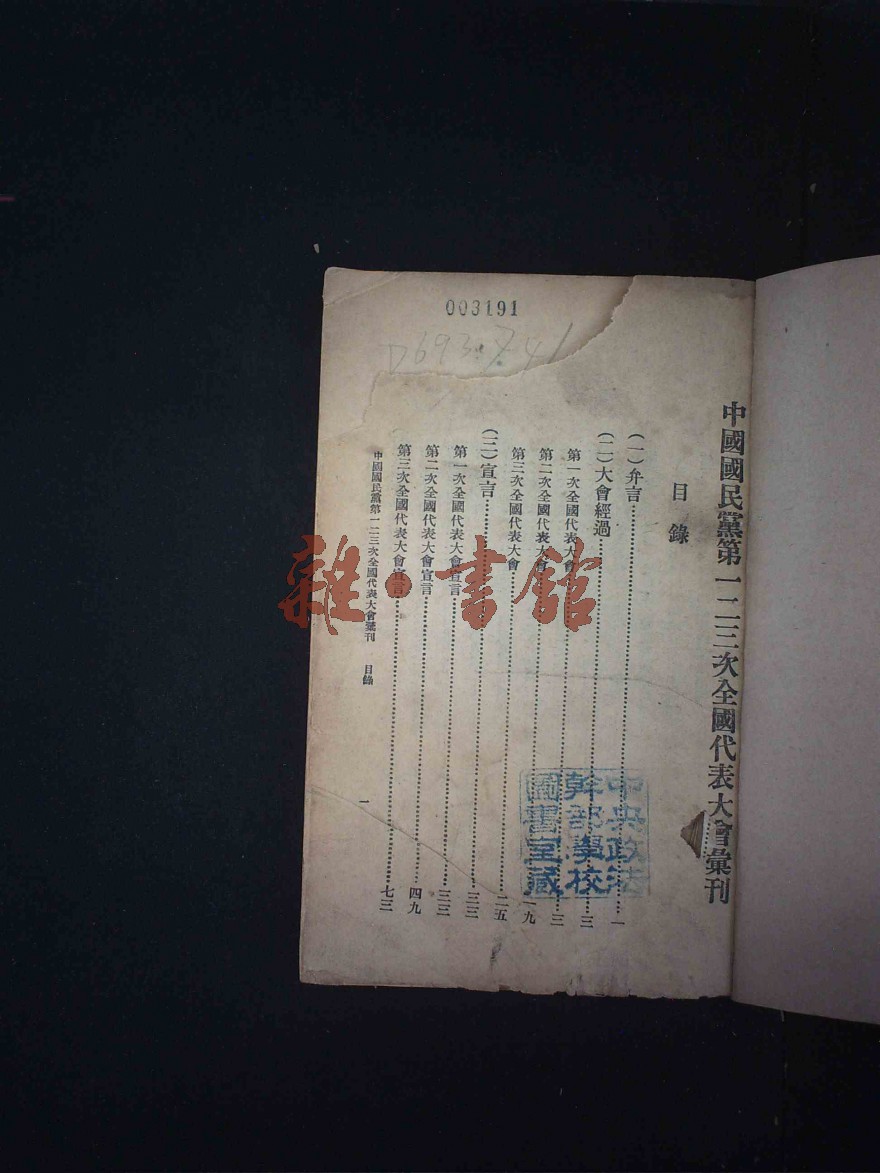 003191
D693.741
中國國民黨第一二三次全國代表大會彙刊
目錄
(一)弁言…………一
(二)大會經過…………三
第一次全國代表大會…………三
第二次全國代表大會…………一九
第三次全國代表大會…………二五
(三)宣言…………三三
第一次全國代表大會宣言…………三三
第二次全國代表大會宣言…………四九
第三次全國代表大會宣言…………七三
中國國民黨第一二三次全國代表大會彙刊 目錄
一
中央政法
幹部學校
圖書室藏
雜·書館